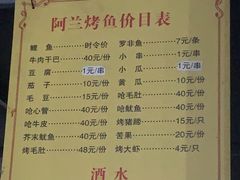 阿兰烤鱼价目表
鲤鱼 时令价 罗非鱼 7元/条
牛肉干巴 40元/份 小串 1元/串
豆腐 1元/串 小瓜 1元/串
茄子 10元/份 黄瓜 10元/份
毛豆 15元/份 呛毛肚 40元/份
呛心管 40元/份 呛鱿鱼 40元/份
呛牛皮 40元/份 烤猪蹄 15元/只
芥末鱿鱼 40元/份 苦果 20元/份
烤毛肚 48元/份 烤大虾 4元/只
酒水